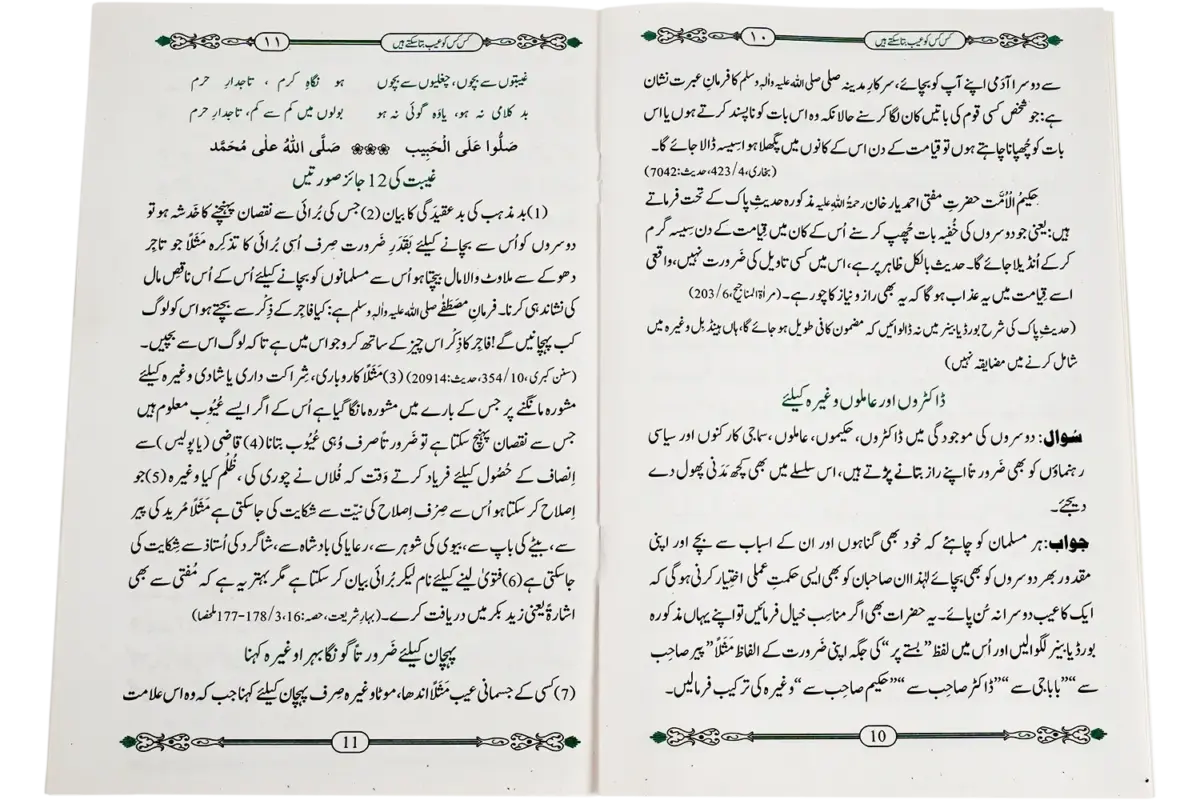 کس کس کو عیب بتا سکتے ہیں
۱۰
سے دوسرا آدمی اپنے آپ کو بچائے، سرکارِ مدینہ صلی اللہ علیہ واٰلہٖ وسلم کا فرمانِ عبرت نشان
ہے: جو شخص کسی قوم کی باتیں کان لگا کر سنے حالانکہ وہ اس بات کو ناپسند کرتے ہوں یا اس
بات کو چُھپانا چاہتے ہوں تو قیامت کے دن اس کے کانوں میں پگھلا ہوا سیسہ ڈالا جائے گا۔
(بخاری،4/423،حدیث:7042)
حکیمُ الْاُمَّت حضرتِ مفتی احمد یار خان رحمۃُ اللہِ علیہ مذکورہ حدیثِ پاک کے تحت فرماتے
ہیں: یعنی جو دوسروں کی خُفیہ بات چُھپ کر سنے اُس کے کان میں قِیامت کے دن سِیسہ گرم
کر کے اُنڈیلا جائے گا۔ حدیث بالکل ظاہر پر ہے، اس میں کسی تاویل کی ضَرورت نہیں، واقعی
اسے قِیامت میں یہ عذاب ہوگا کہ یہ بھی راز و نیاز کا چور ہے۔ (مراٰۃ المناجیح،6/203)
(حدیثِ پاک کی شرح بورڈ یا بینر میں نہ ڈلوائیں کہ مضمون کافی طویل ہو جائے گا، ہاں ہینڈ بل وغیرہ میں
شامل کرنے میں مضایقہ نہیں)
ڈاکٹروں اور عاملوں وغیرہ کیلئے
سُوال: دوسروں کی موجودگی میں ڈاکٹروں، حکیموں، عاملوں، سماجی کارکنوں اور سیاسی
رہنماؤں کو بھی ضَرورتاً اپنے راز بتانے پڑتے ہیں، اس سلسلے میں بھی کچھ مدَنی پھول دے
دیجئے۔
جواب: ہر مسلمان کو چاہئے کہ خود بھی گناہوں اور ان کے اسباب سے بچے اور اپنی
مقدور بھر دوسروں کو بھی بچائے لہٰذا ان صاحبان کو بھی ایسی حکمتِ عملی اختیار کرنی ہو گی کہ
ایک کا عیب دوسرا نہ سُن پائے۔ یہ حضرات بھی اگر مناسِب خیال فرمائیں تو اپنے یہاں مذکورہ
بورڈ یا بینر لگوا لیں اور اُس میں لفظ ”بستے پر“ کی جگہ اپنی ضَرورت کے الفاظ مَثَلاً ”پیر صاحِب
سے“ ”بابا جی سے“ ”ڈاکٹر صاحِب سے“ ”حکیم صاحِب سے“ وغیرہ کی ترکیب فرما لیں۔
10
کس کس کو عیب بتا سکتے ہیں
۱۱
غیبتوں سے بچوں، چغلیوں سے بچوں ہو نگاہِ کرم ، تاجدارِ حرم
بد کلامی نہ ہو، یاوَہ گوئی نہ ہو بولوں میں کم سے کم، تاجدارِ حرم
صَلُّوا عَلَی الْحَبِیب ❀❀❀ صَلَّی اللّٰہُ علٰی مُحَمَّد
غیبت کی 12 جائز صورتیں
(1) بد مذہب کی بد عقیدَگی کا بیان (2) جس کی بُرائی سے نقصان پہنچنے کا خَدشہ ہو تو
دوسروں کو اُس سے بچانے کیلئے بَقَدَرِ ضَرورت صِرف اُسی بُرائی کا تذکِرہ مَثَلاً جو تاجِر
دھوکے سے ملاوٹ والا مال بیچتا ہو اُس سے مسلمانوں کو بچانے کیلئے اُس کے اُس ناقِص مال
کی نشاندہی کرنا۔ فرمانِ مصطَفٰے صلی اللہ علیہ واٰلہٖ وسلم ہے: کیا فاجِر کے ذِکر سے بچتے ہو اس کو لوگ
کب پہچانیں گے! فاجِر کا ذِکْر اس چیز کے ساتھ کرو جو اس میں ہے تاکہ لوگ اس سے بچیں۔
(سنن کبری،10/354،حدیث:20914) (3) مَثَلاً کاروباری، شِراکت داری یا شادی وغیرہ کیلئے
مشورہ مانگنے پر جس کے بارے میں مشورہ مانگا گیا ہے اُس کے اگر ایسے عُیُوب معلوم ہیں
جس سے نقصان پہنچ سکتا ہے تو ضَرورتاً صرف وُہی عُیُوب بتانا (4) قاضی (یا پولیس) سے
اِنصاف کے حُصُول کیلئے فریاد کرتے وَقت کہ فُلاں نے چوری کی ، ظُلْم کیا وغیرہ (5) جو
اِصلاح کر سکتا ہو اُس سے صِرف اِصلاح کی نیّت سے شکایت کی جاسکتی ہے مَثَلاً مُرید کی پیر
سے، بیٹے کی باپ سے، بیوی کی شوہر سے، رعایا کی بادشاہ سے، شاگرد کی اُستاذ سے شِکایت کی
جاسکتی ہے (6) فتویٰ لینے کیلئے نام لیکر بُرائی بیان کر سکتا ہے مگر بہتر یہ ہے کہ مُفتی سے بھی
اشارۃً یعنی زید بکر میں دریافت کرے۔ (بہارِ شریعت،حصہ:16،3/177-178ملخصا)
پہچان کیلئے ضَرورتاً گونگا بہرا وغیرہ کہنا
(7) کسی کے جسمانی عیب مَثَلاً اندھا، موٹا وغیرہ صِرف پہچان کیلئے کہنا جب کہ وہ اس علامت
11